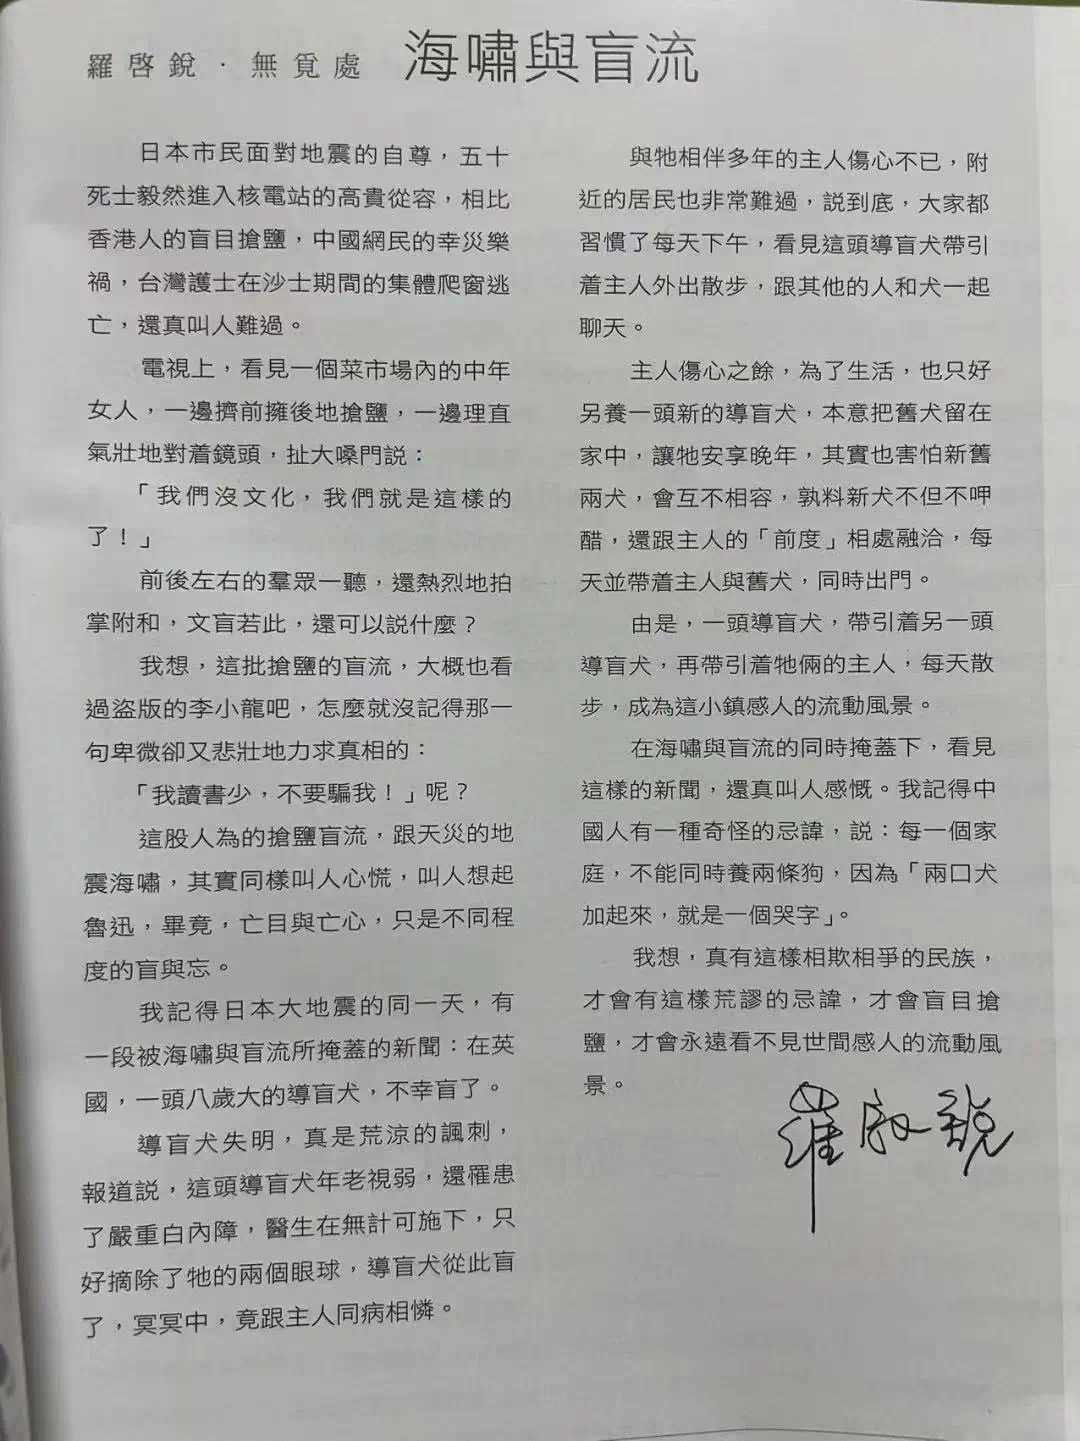 羅啓銳·無覓處 海嘯與盲流
日本市民面對地震的自尊，五十
死士毅然進入核電站的高貴從容，相比
香港人的盲目搶鹽，中國網民的幸災樂
禍，台灣護士在沙士期間的集體爬窗逃
亡，還真叫人難過。
電視上，看見一個菜市場內的中年
女人，一邊擠前擁後地搶鹽，一邊理直
氣壯地對着鏡頭，扯大嗓門説：
「我們沒文化，我們就是這樣的
了！」
前後左右的羣眾一聽，還熱烈地拍
掌附和，文盲若此，還可以説什麼？
我想，這批搶鹽的盲流，大概也看
過盜版的李小龍吧，怎麼就沒記得那一
句卑微卻又悲壯地力求真相的：
「我讀書少，不要騙我！」呢？
這股人為的搶鹽盲流，跟天災的地
震海嘯，其實同樣叫人心慌，叫人想起
魯迅，畢竟，亡目與亡心，只是不同程
度的盲與忘。
我記得日本大地震的同一天，有
一段被海嘯與盲流所掩蓋的新聞：在英
國，一頭八歲大的導盲犬，不幸盲了。
導盲犬失明，真是荒涼的諷刺，
報道説，這頭導盲犬年老視弱，還罹患
了嚴重白內障，醫生在無計可施下，只
好摘除了牠的兩個眼球，導盲犬從此盲
了，冥冥中，竟跟主人同病相憐。
與牠相伴多年的主人傷心不已，附
近的居民也非常難過，説到底，大家都
習慣了每天下午，看見這頭導盲犬帶引
着主人外出散步，跟其他的人和犬一起
聊天。
主人傷心之餘，為了生活，也只好
另養一頭新的導盲犬，本意把舊犬留在
家中，讓牠安享晚年，其實也害怕新舊
兩犬，會互不相容，孰料新犬不但不呷
醋，還跟主人的「前度」相處融洽，每
天並帶着主人與舊犬，同時出門。
由是，一頭導盲犬，帶引着另一頭
導盲犬，再帶引着牠倆的主人，每天散
步，成為這小鎮感人的流動風景。
在海嘯與盲流的同時掩蓋下，看見
這樣的新聞，還真叫人感慨。我記得中
國人有一種奇怪的忌諱，説：每一個家
庭，不能同時養兩條狗，因為「兩口犬
加起來，就是一個哭字」。
我想，真有這樣相欺相爭的民族，
才會有這樣荒謬的忌諱，才會盲目搶
鹽，才會永遠看不見世間感人的流動風
景。
羅啟銳